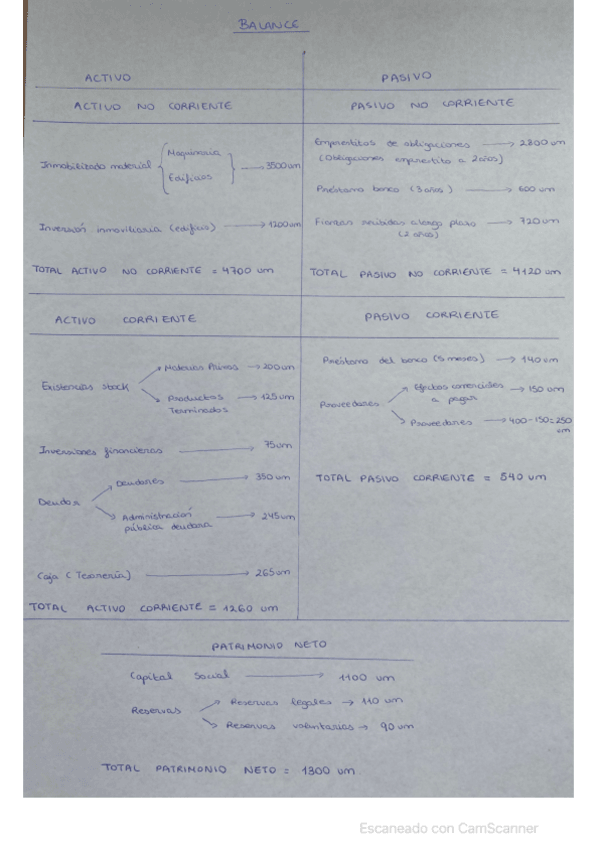 BALANCE
ACTIVO
PASIVO
ACTIVO NO CORRIENTE
PASIVO NO CORRIENTE
Inmobilizado material { Maquinaria
Edificios } → 3500 um
Inversión inmoviliaria (edificio) → 1200 um
TOTAL ACTIVO NO CORRIENTE = 4700 um
Emprestitos de obligaciones → 2800 um
(Obligaciones emprestito a 2 años)
Préstamo banco (3 años) → 600 um
Fianzas recibidas a largo plazo → 720 um
(2 años)
TOTAL PASIVO NO CORRIENTE = 4120 um
ACTIVO CORRIENTE
PASIVO CORRIENTE
Existencias stock
Materias Primas → 200 um
Productos → 125 um
Terminados
Inversiones financieras 75 um
Deudor
Deudores → 350 um
Administración → 245 um
pública deudora
Caja (Tesorería) → 265 um
TOTAL ACTIVO CORRIENTE = 1260 um
Préstamo del banco (5 meses) → 140 um
Proveedores
Efectos comerciales → 150 um
a pagar
Proveedores → 400-150=250
um
TOTAL PASIVO CORRIENTE = 540 um
PATRIMONIO NETO
Capital Social → 1100 um
Reservas
Reservas legales → 110 um
Reservas voluntarias → 90 um
TOTAL PATRIMONIO NETO = 1300 um
Escaneado con CamScanner